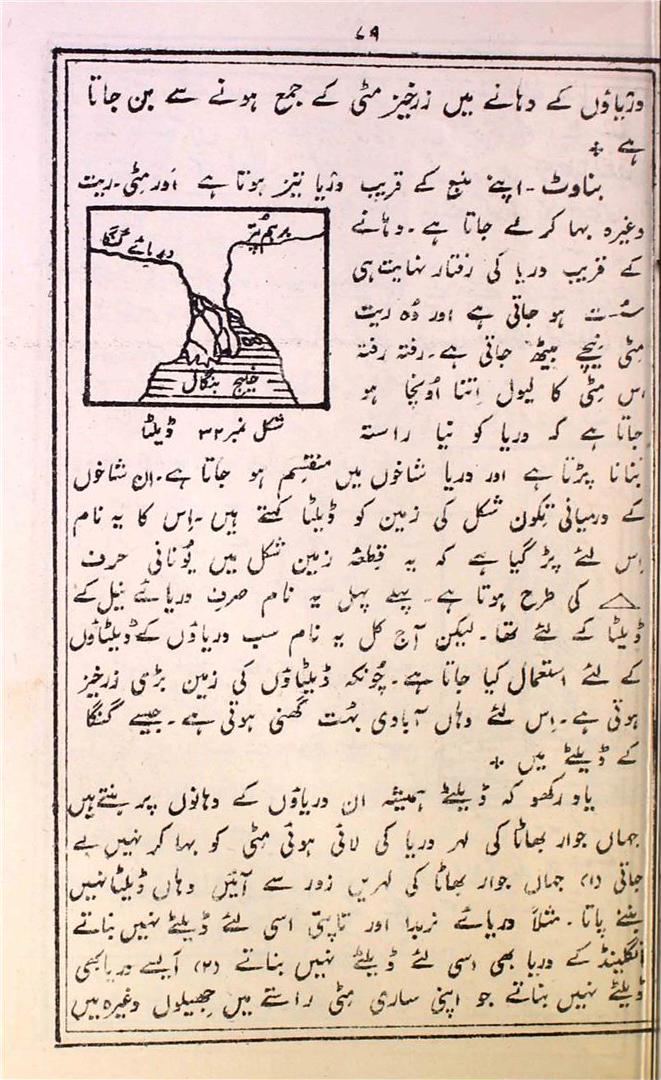 ۷۹
دریاؤں کے دہانے میں زرخیز مٹی کے جمع ہونے سے بن جاتا
ہے +
بناوٹ - اپنے منبع کے قریب دریا تیز ہوتا ہے اور مٹی - ریت
وغیرہ بہا کر لے جاتا ہے - دہانے
کے قریب دریا کی رفتار نہایت ہی
سُست ہو جاتی ہے اور وُہ ریت
مٹی نیچے بیٹھ جاتی ہے - رفتہ رفتہ
اس مٹی کا لیول اِتنا اُونچا ہو
جاتا ہے کہ دریا کو نیا راستہ
برہم پُتر
دریائے گنگا
خلیج بنگال
شکل نمبر ۳۲ ڈیلٹا
بنانا پڑتا ہے اور دریا شاخوں میں منقسِم ہو جاتا ہے - ان شاخوں
کے درمیانی تکون شکل کی زمین کو ڈیلٹا کہتے ہیں - اِس کا یہ نام
اِس لئے پڑ گیا ہے کہ یہ قِطعۂ زمین شکل میں یُونانی حرف
△ کی طرح ہوتا ہے - پہلے پہل یہ نام صرف دریائے نیل کے
ڈیلٹا کے لئے تھا - لیکن آج کل یہ نام سب دریاؤں کے ڈیلٹاؤں
کے لئے استعمال کیا جاتا ہے - چُونکہ ڈیلٹاؤں کی زمین بڑی زرخیز
ہوتی ہے - اِس لئے وہاں آبادی بہُت گھنی ہوتی ہے - جیسے گنگا
کے ڈیلٹے میں +
یاد رکھو کہ ڈیلٹے ہمیشہ ان دریاؤں کے دہانوں پر بنتے ہیں
جہاں جوار بھاٹا کی لہر دریا کی لائی ہوئی مٹی کو بہا کر نہیں لے
جاتی (۱) جہاں جوار بھاٹا کی لہریں زور سے آئیں وہاں ڈیلٹا نہیں
بننے پاتا - مثلاً دریائے نربدا اور تاپتی اسی لئے ڈیلٹے نہیں بناتے
انگلینڈ کے دریا بھی اسی لئے ڈیلٹے نہیں بناتے (۲) ایسے دریا بھی
ڈیلٹے نہیں بناتے جو اپنی ساری مٹی راستے میں جھیلوں وغیرہ میں